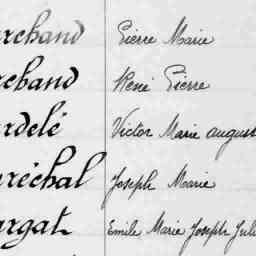 rchand Pierre Marie
rchand René Pierre
rdelé Victor Marie august
réchal Joseph Marie
rgat Emile Marie Joseph Juli